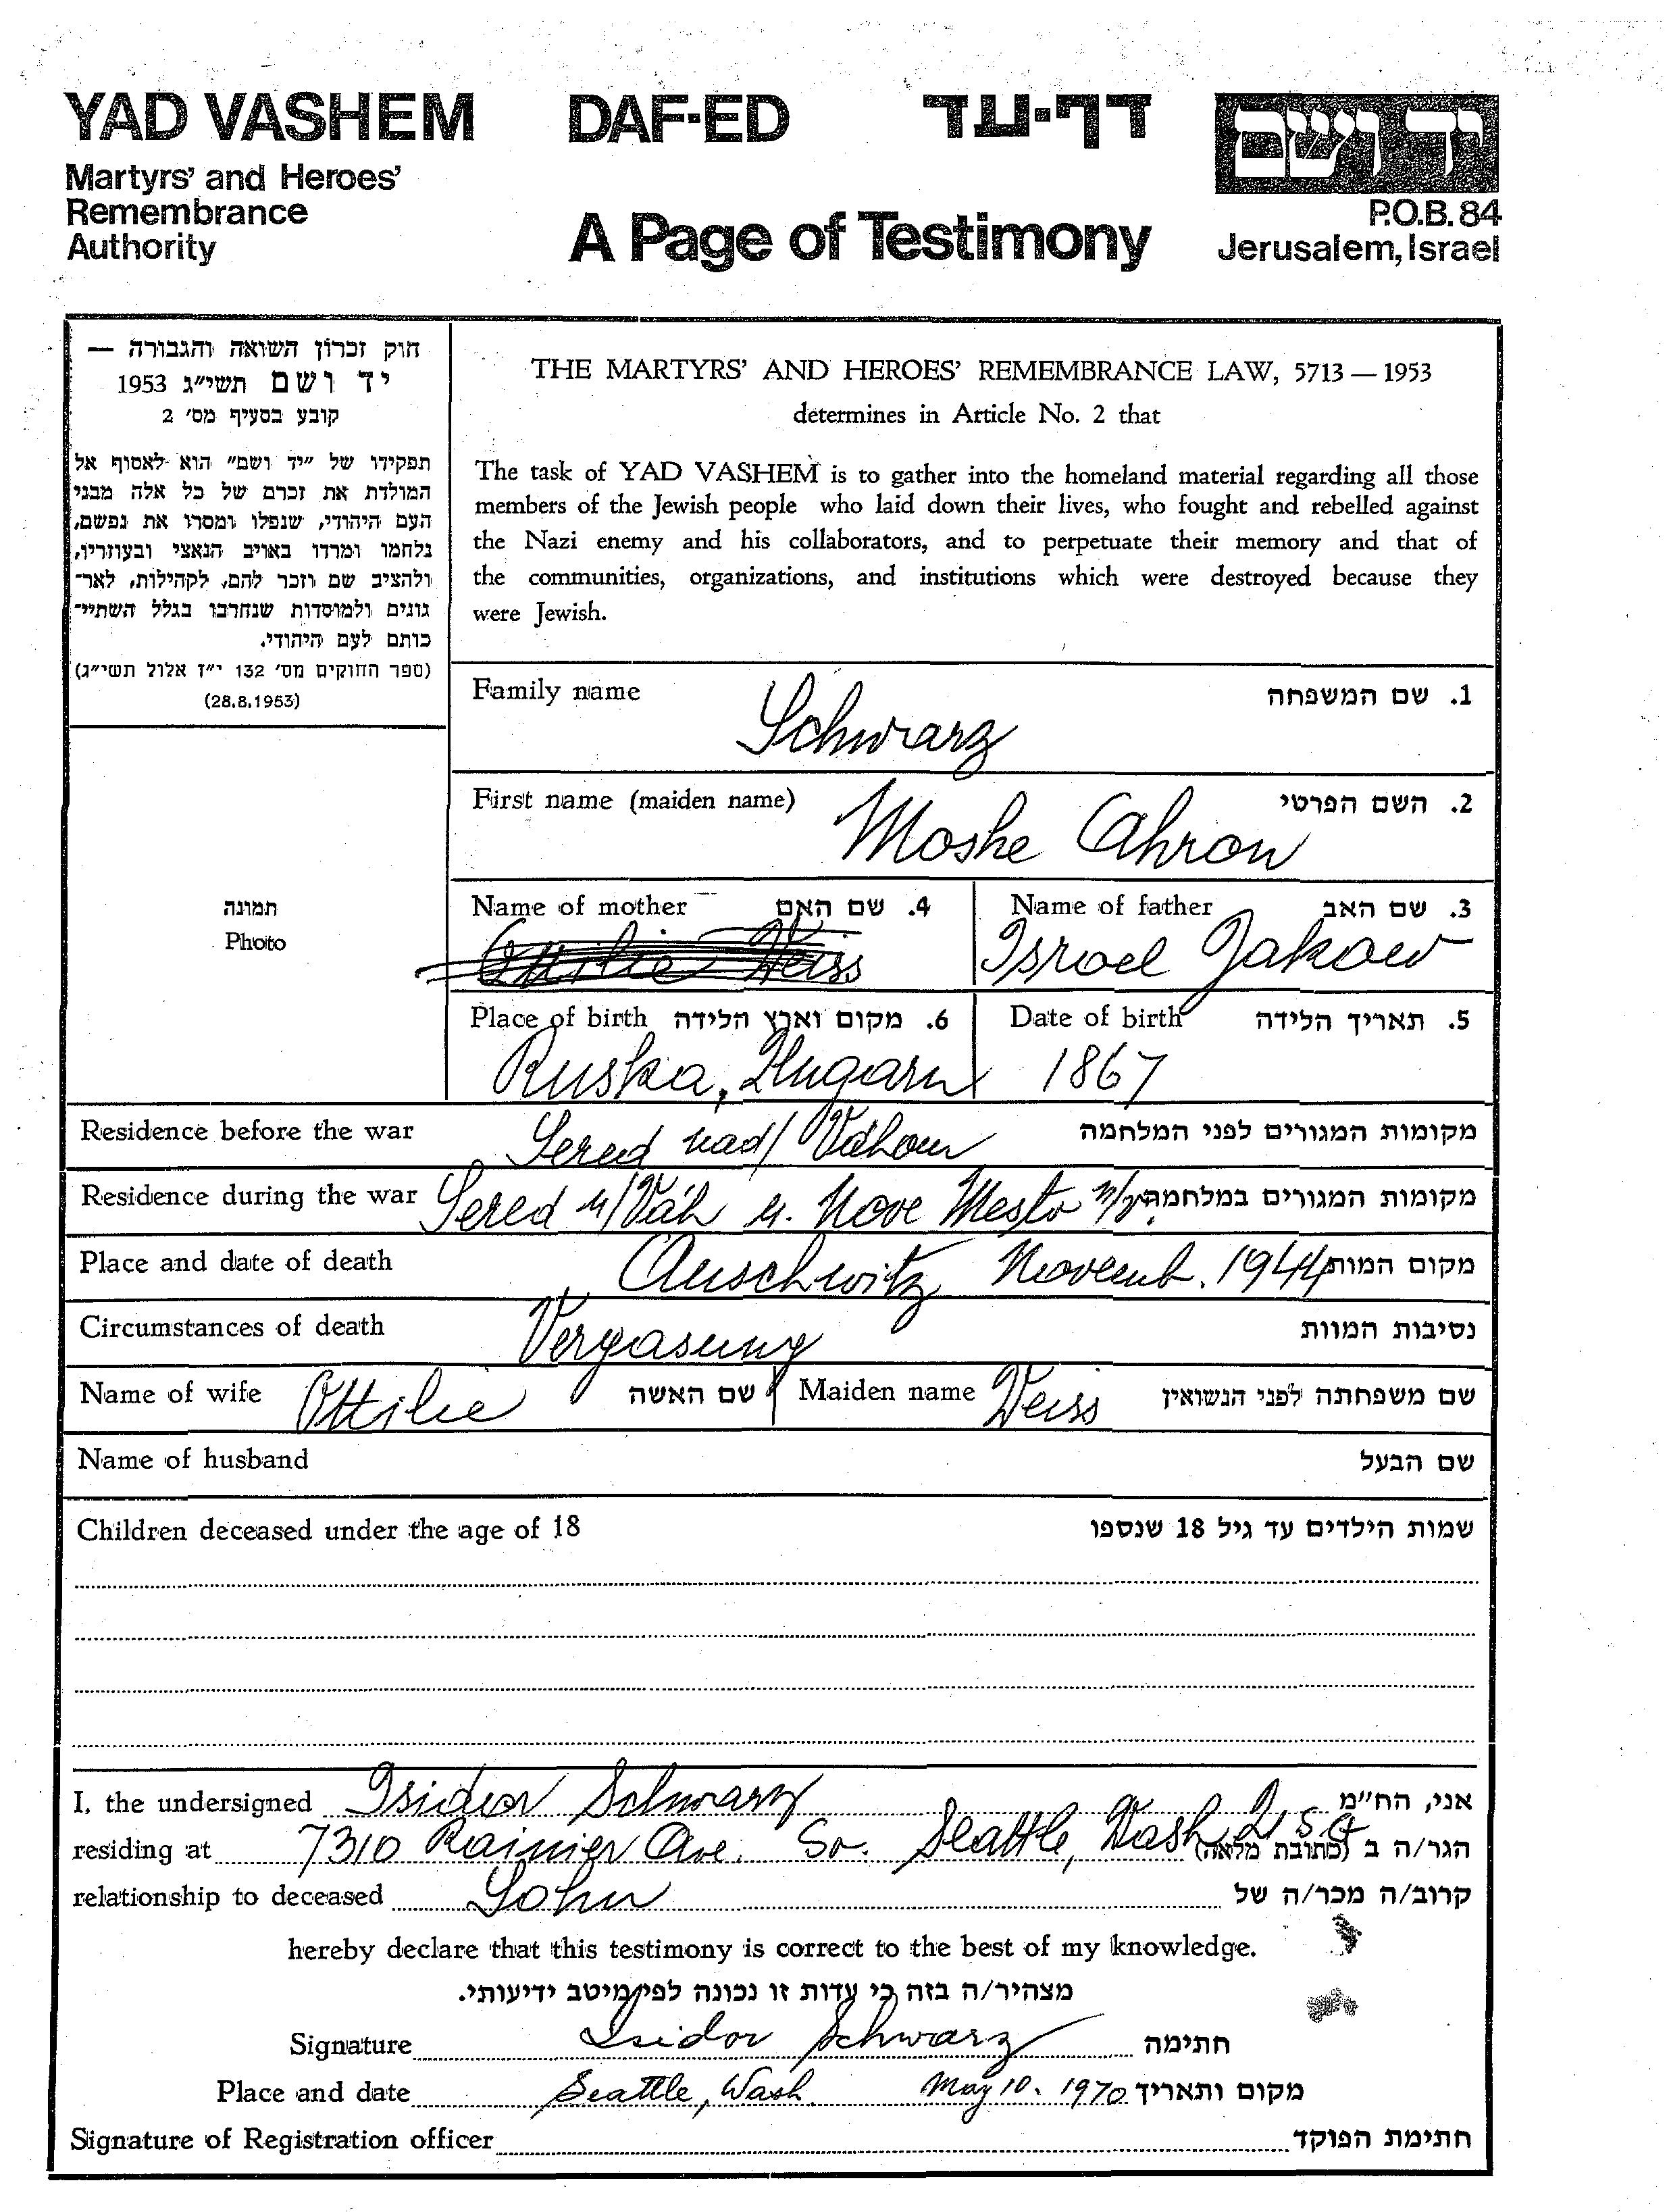 YAD VASHEM DAF-ED דף-עד יד ושם
Martyrs' and Heroes'
Remembrance
Authority
A Page of Testimony
P.O.B. 84
Jerusalem, Israel
חוק זכרון השואה והגבורה —
יד ושם תשי"ג 1953
קובע בסעיף מס' 2
תפקידו של "יד ושם" הוא לאסוף אל
המולדת את זכרם של כל אלה מבני
העם היהודי, שנפלו ומסרו את נפשם,
נלחמו ומרדו באויב הנאצי ובעוזריו,
ולהציב שם וזכר להם, לקהילות, לאר־
גונים ולמוסדות שנחרבו בגלל השתיי־
כותם לעם היהודי.
(ספר החוקים מס' 132 י"ז אלול תשי"ג)
(28.8.1953)
THE MARTYRS' AND HEROES' REMEMBRANCE LAW, 5713 — 1953
determines in Article No. 2 that
The task of YAD VASHEM is to gather into the homeland material regarding all those
members of the Jewish people who laid down their lives, who fought and rebelled against
the Nazi enemy and his collaborators, and to perpetuate their memory and that of
the communities, organizations, and institutions which were destroyed because they
were Jewish.
Family name Schwarz 1. שם המשפחה
First name (maiden name) Moshe Ahron 2. השם הפרטי
תמונה
Photo
Name of mother 4. שם האם Ottilie Weiss
Name of father 3. שם האב Israel Jakow
Place of birth 6. מקום וארץ הלידה Ruska, Ungarn
Date of birth 5. תאריך הלידה 1867
Residence before the war Sered nad/Váhom מקומות המגורים לפני המלחמה
Residence during the war Sered n/Váh u. Nove Mesto n/v. מקומות המגורים במלחמה
Place and date of death Auschwitz Novemb. 1944 מקום המות
Circumstances of death Vergasung נסיבות המוות
Name of wife Ottilie שם האשה Maiden name Weiss שם משפחתה לפני הנשואין
Name of husband שם הבעל
Children deceased under the age of 18 שמות הילדים עד גיל 18 שנספו
I, the undersigned Isidor Schwarz אני, הח"מ
residing at 7310 Rainier Ave. So. Seattle, Wash. USA הגר/ה ב (כתובת מלאה)
relationship to deceased Sohn קרוב/ה מכר/ה של
hereby declare that this testimony is correct to the best of my knowledge.
מצהיר/ה בזה כי עדות זו נכונה לפי מיטב ידיעותי.
Signature Isidor Schwarz חתימה
Place and date Seattle, Wash. May 10. 1970 מקום ותאריך
Signature of Registration officer חתימת הפוקד